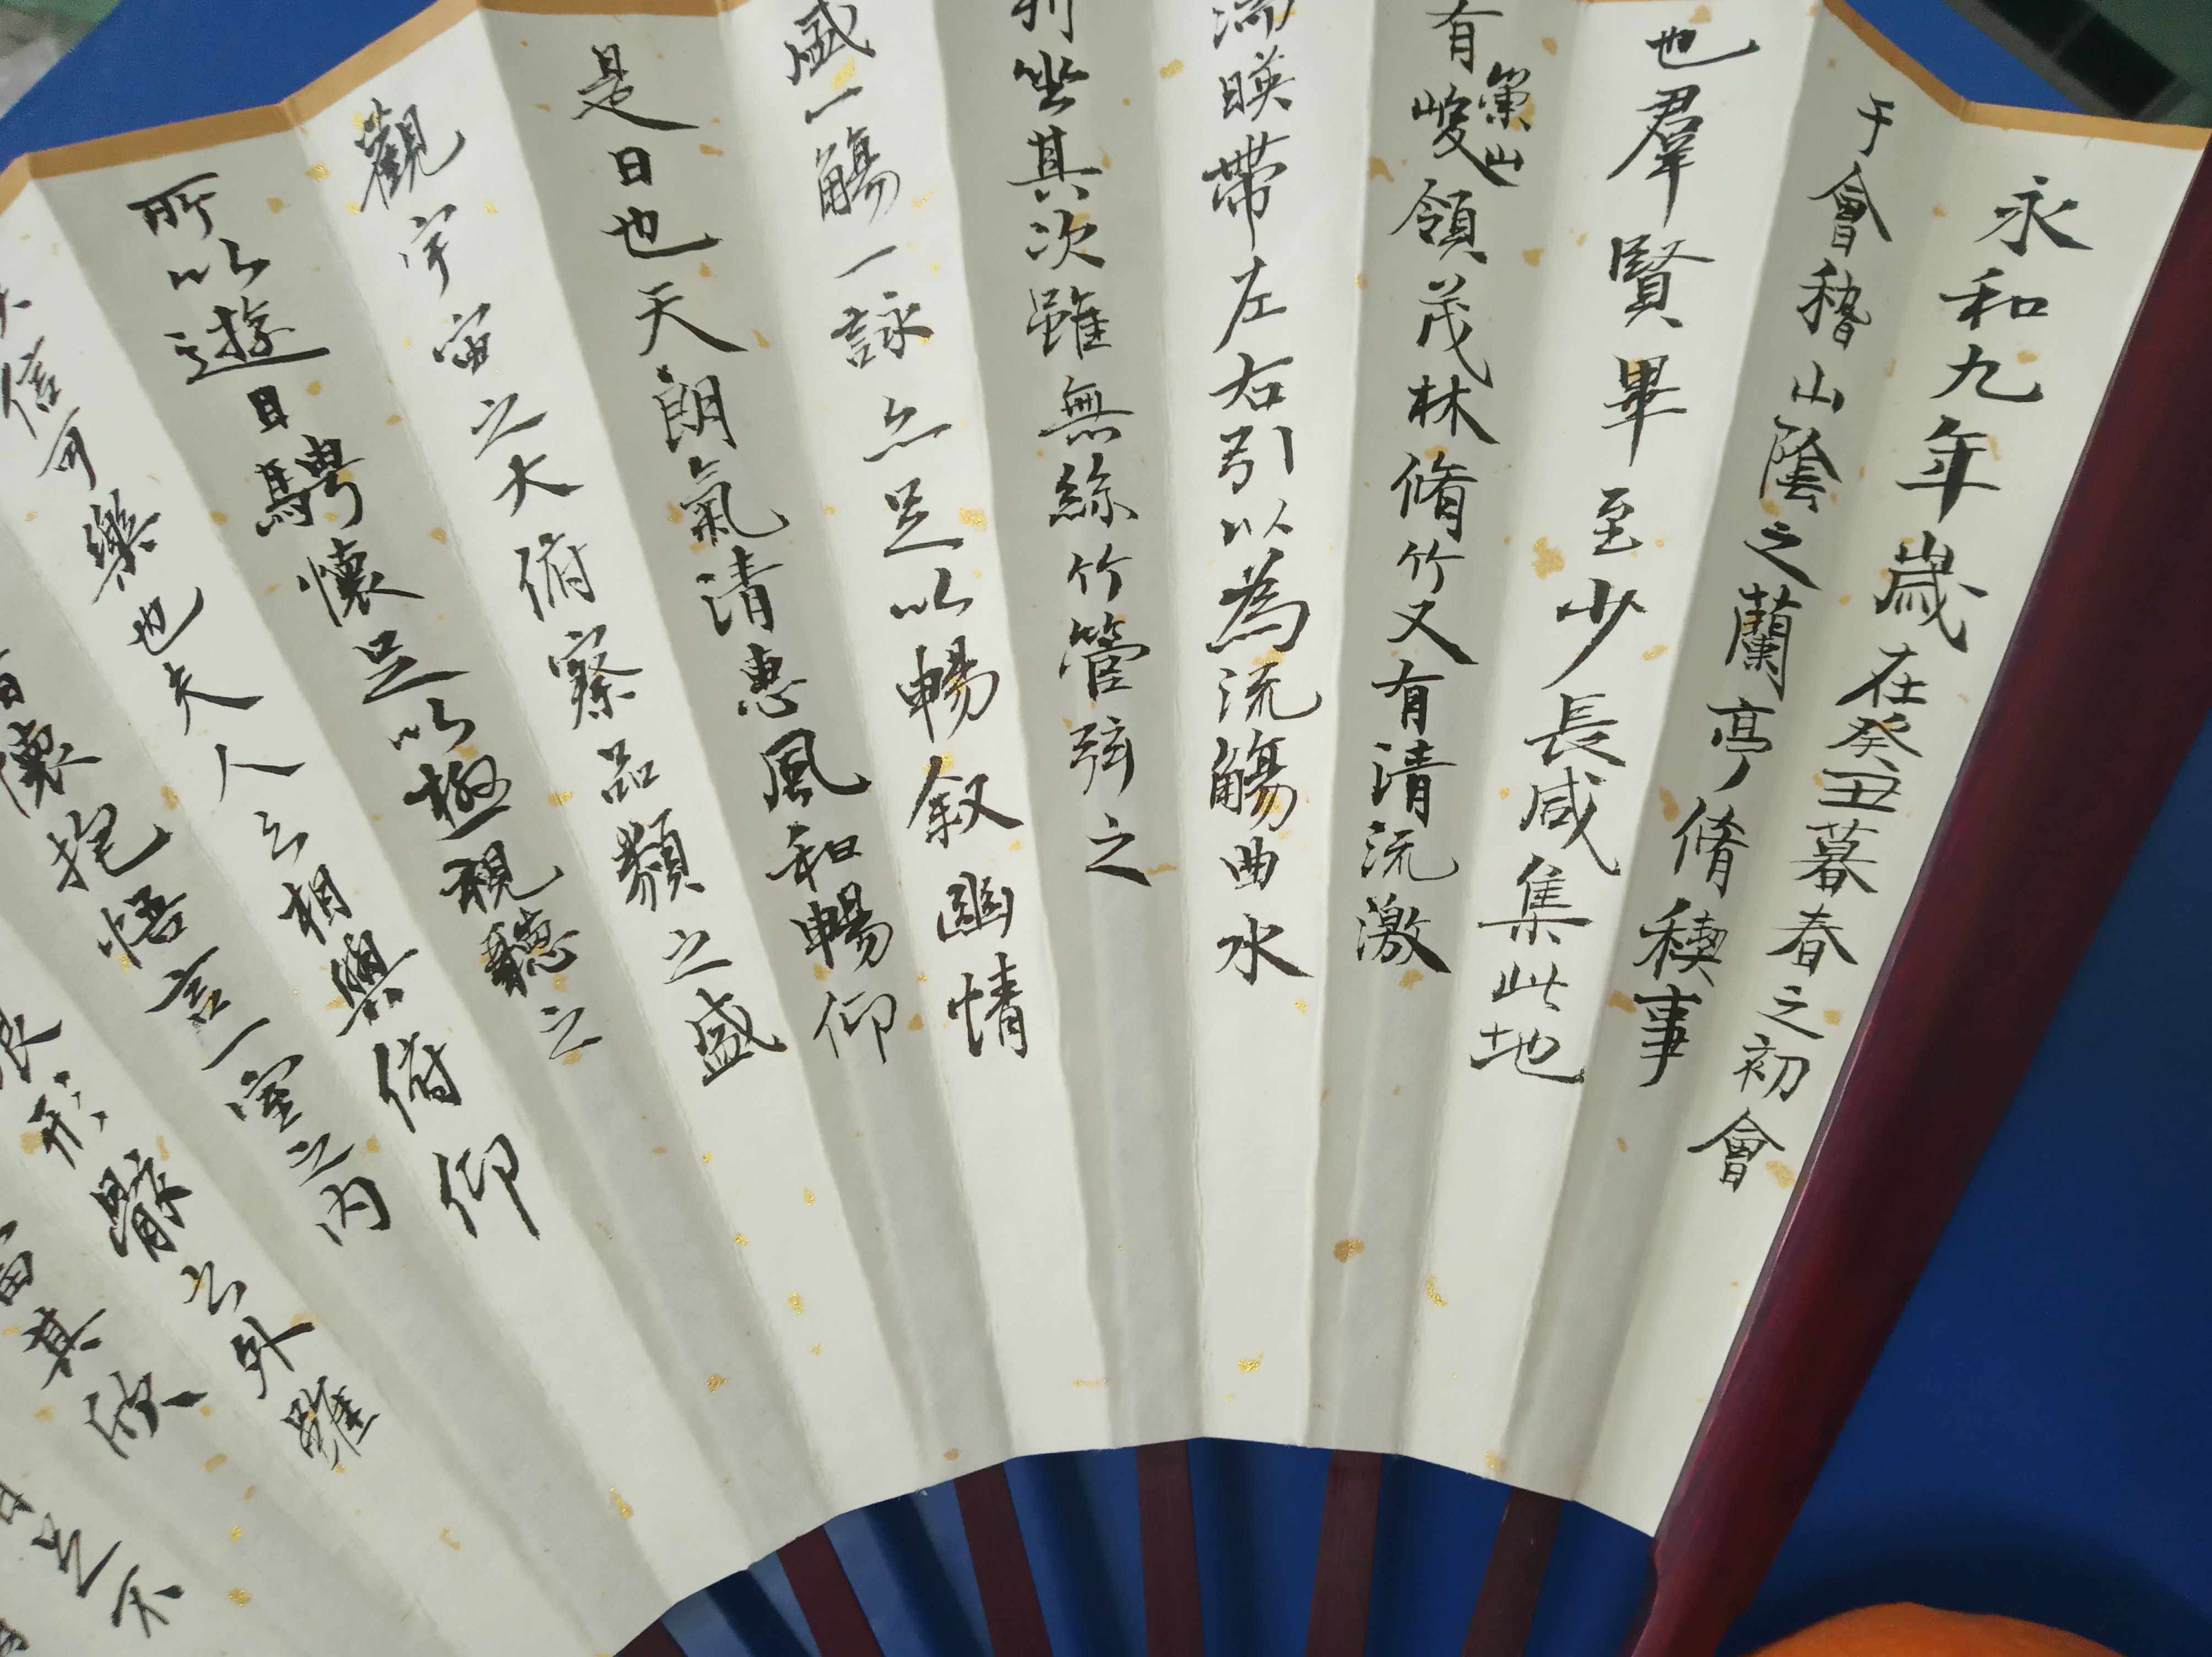 永和九年歲在癸丑暮春之初會
于會稽山陰之蘭亭脩稧事
也羣賢畢至少長咸集此地
有崇山峻領茂林脩竹又有清流激
湍暎帶左右引以為流觴曲水
列坐其次雖無絲竹管弦之
盛一觴一詠亦足以暢叙幽情
是日也天朗氣清惠風和暢仰
觀宇宙之大俯察品類之盛
所以遊目騁懷足以極視聽之
信可樂也夫人之相與俯仰
懷抱悟言一室之內
形骸之外雖
當其欣
足不